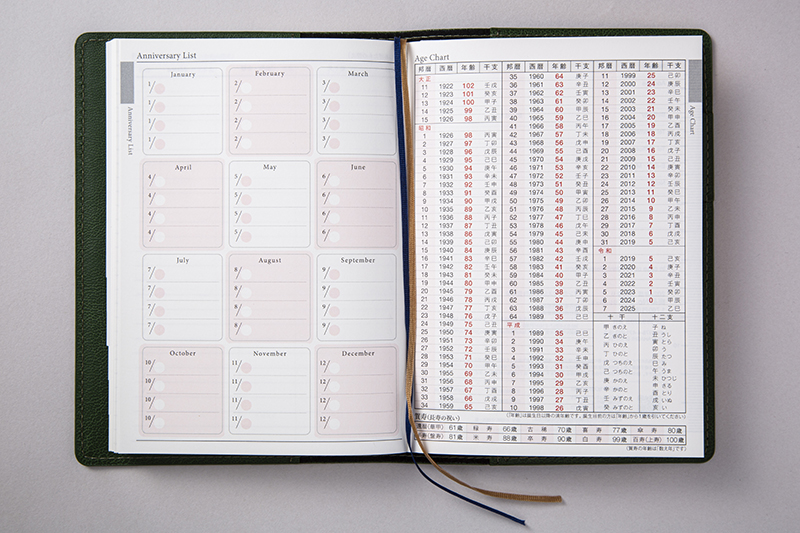 Anniversary List
January
February
March
1/
2/
3/
1/
2/
3/
1/
2/
3/
1/
2/
3/
April
May
June
4/
5/
6/
4/
5/
6/
4/
5/
6/
4/
5/
6/
July
August
September
7/
8/
9/
7/
8/
9/
7/
8/
9/
7/
8/
9/
October
November
December
10/
11/
12/
10/
11/
12/
10/
11/
12/
10/
11/
12/
Anniversary List
Age Chart
邦暦 西暦 年齢 干支
大正
11 1922 102 壬戌
12 1923 101 癸亥
13 1924 100 甲子
14 1925 99 乙丑
15 1926 98 丙寅
昭和
1 1926 98 丙寅
2 1927 97 丁卯
3 1928 96 戊辰
4 1929 95 己巳
5 1930 94 庚午
6 1931 93 辛未
7 1932 92 壬申
8 1933 91 癸酉
9 1934 90 甲戌
10 1935 89 乙亥
11 1936 88 丙子
12 1937 87 丁丑
13 1938 86 戊寅
14 1939 85 己卯
15 1940 84 庚辰
16 1941 83 辛巳
17 1942 82 壬午
18 1943 81 癸未
19 1944 80 甲申
20 1945 79 乙酉
21 1946 78 丙戌
22 1947 77 丁亥
23 1948 76 戊子
24 1949 75 己丑
25 1950 74 庚寅
26 1951 73 辛卯
27 1952 72 壬辰
28 1953 71 癸巳
29 1954 70 甲午
30 1955 69 乙未
31 1956 68 丙申
32 1957 67 丁酉
33 1958 66 戊戌
34 1959 65 己亥
邦暦 西暦 年齢 干支
35 1960 64 庚子
36 1961 63 辛丑
37 1962 62 壬寅
38 1963 61 癸卯
39 1964 60 甲辰
40 1965 59 乙巳
41 1966 58 丙午
42 1967 57 丁未
43 1968 56 戊申
44 1969 55 己酉
45 1970 54 庚戌
46 1971 53 辛亥
47 1972 52 壬子
48 1973 51 癸丑
49 1974 50 甲寅
50 1975 49 乙卯
51 1976 48 丙辰
52 1977 47 丁巳
53 1978 46 戊午
54 1979 45 己未
55 1980 44 庚申
56 1981 43 辛酉
57 1982 42 壬戌
58 1983 41 癸亥
59 1984 40 甲子
60 1985 39 乙丑
61 1986 38 丙寅
62 1987 37 丁卯
63 1988 36 戊辰
64 1989 35 己巳
平成
1 1989 35 己巳
2 1990 34 庚午
3 1991 33 辛未
4 1992 32 壬申
5 1993 31 癸酉
6 1994 30 甲戌
7 1995 29 乙亥
8 1996 28 丙子
9 1997 27 丁丑
10 1998 26 戊寅
邦暦 西暦 年齢 干支
11 1999 25 己卯
12 2000 24 庚辰
13 2001 23 辛巳
14 2002 22 壬午
15 2003 21 癸未
16 2004 20 甲申
17 2005 19 乙酉
18 2006 18 丙戌
19 2007 17 丁亥
20 2008 16 戊子
21 2009 15 己丑
22 2010 14 庚寅
23 2011 13 辛卯
24 2012 12 壬辰
25 2013 11 癸巳
26 2014 10 甲午
27 2015 9 乙未
28 2016 8 丙申
29 2017 7 丁酉
30 2018 6 戊戌
31 2019 5 己亥
令和
1 2019 5 己亥
2 2020 4 庚子
3 2021 3 辛丑
4 2022 2 壬寅
5 2023 1 癸卯
6 2024 0 甲辰
7 2025 乙巳
十干 十二支
甲 きのえ
乙 きのと
丙 ひのえ
丁 ひのと
戊 つちのえ
己 つちのと
庚 かのえ
辛 かのと
壬 みずのえ
癸 みずのと
子 ね
丑 うし
寅 とら
卯 う
辰 たつ
巳 み
午 うま
未 ひつじ
申 さる
酉 とり
戌 いぬ
亥 い
賀寿(長寿の祝い)
(「年齢」は誕生日以降の満年齢です。誕生日前の方は「年齢」から1歳を引いてください)
還暦(華甲) 61歳 緑寿 66歳 古稀 70歳 喜寿 77歳 傘寿 80歳
半寿(盤寿) 81歳 米寿 88歳 卒寿 90歳 白寿 99歳 百寿(上寿) 100歳
(賀寿の年齢は「数え年」です)
Age Chart